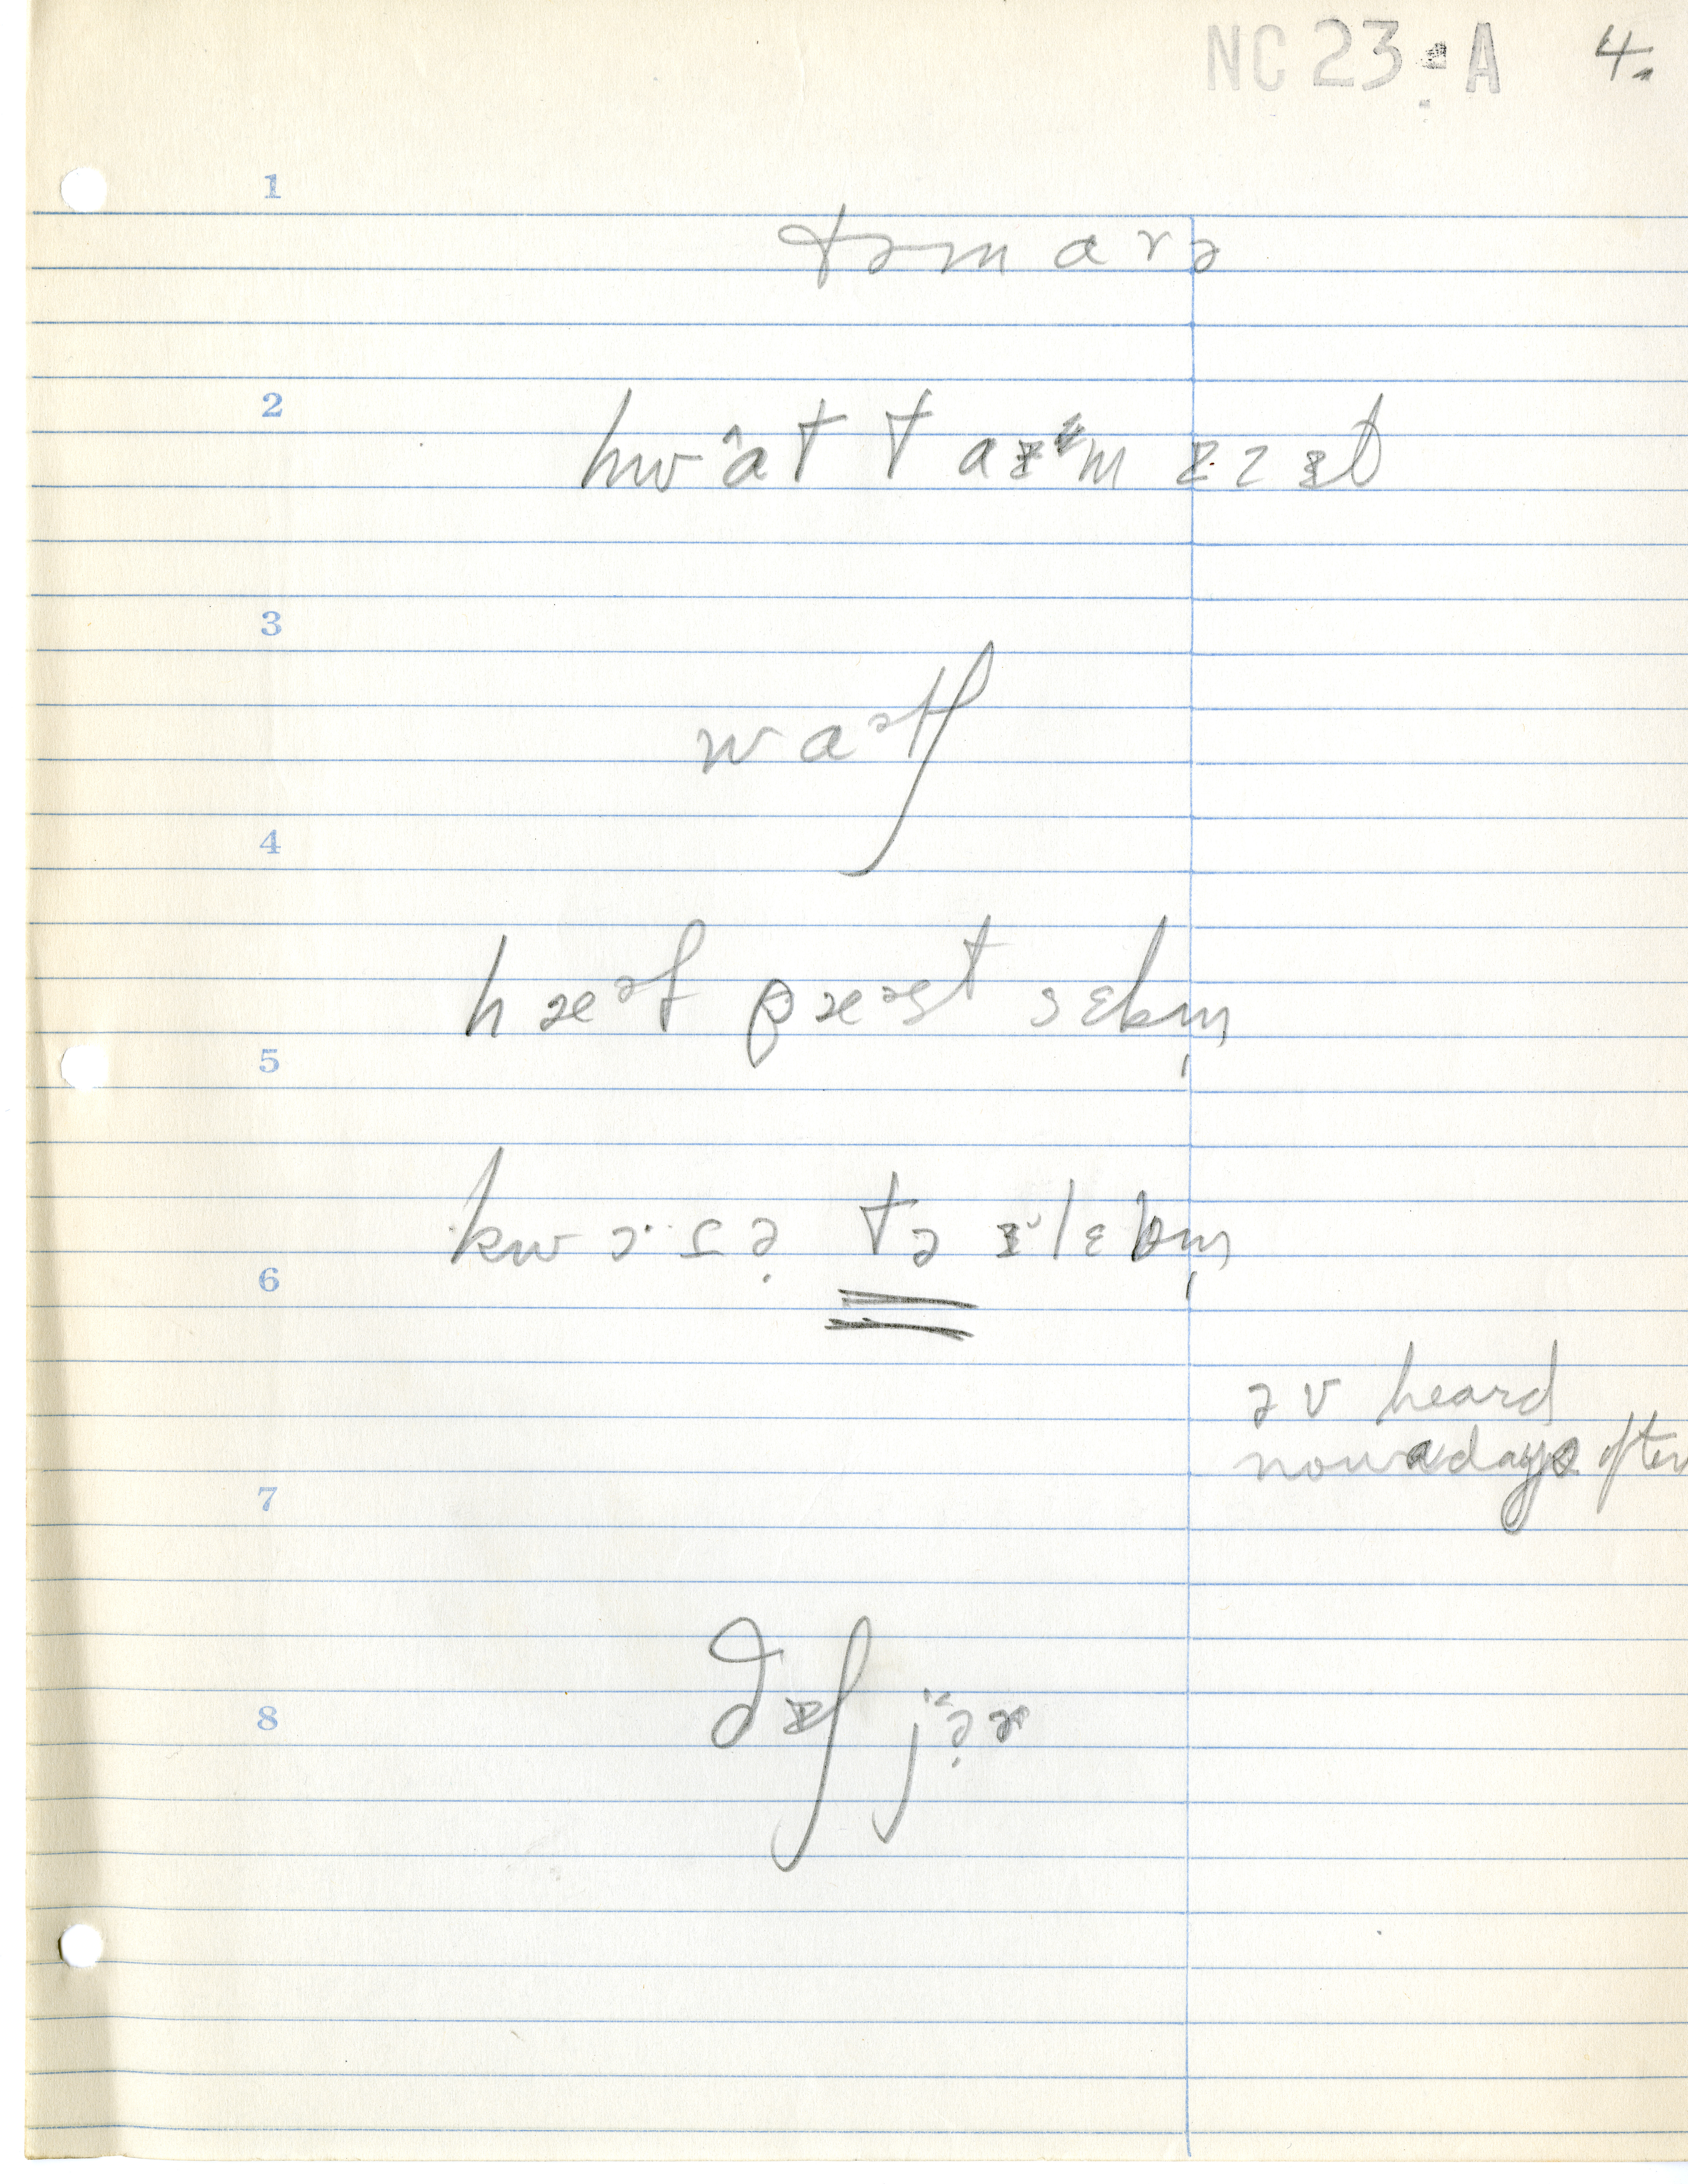 NC 23 : A 4.
1
təmarə
2
hwat taɪm ɪz ɪt
3
waətʃ
4
hæəf pæəst sɛbm̩
5
kwɔ·ɹə̣ tə ɪˇlɛbm̩
6
əv heard
nowadays often
7
8
ðɪʃ jə̣ɚ